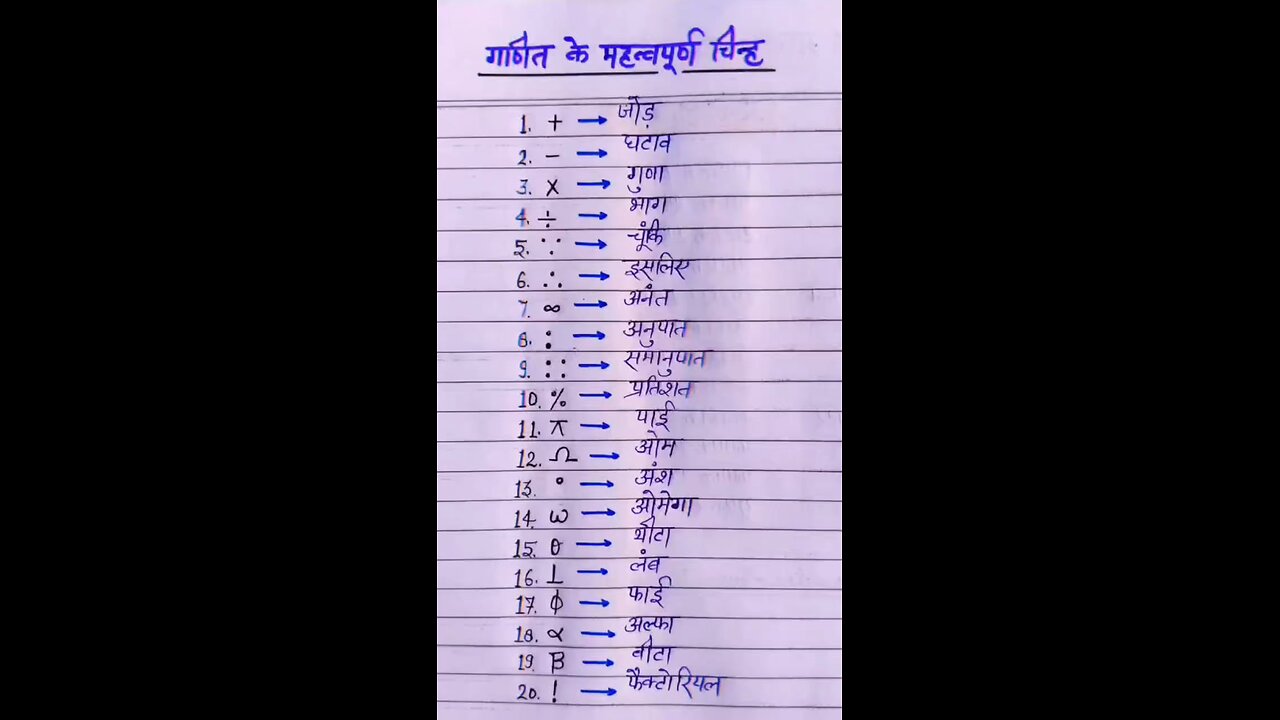 गणित के महत्वपूर्ण चिन्ह
1. + → जोड़
2. − → घटाव
3. × → गुणा
4. ÷ → भाग
5. ∵ → चूंकि
6. ∴ → इसलिए
7. ∞ → अनंत
8. : → अनुपात
9. :: → समानुपात
10. % → प्रतिशत
11. π → पाई
12. Ω → ओम
13. ° → अंश
14. ω → ओमेगा
15. θ → थीटा
16. ⊥ → लंब
17. ϕ → फाई
18. α → अल्फा
19. β → बीटा
20. ! → फैक्टोरियल